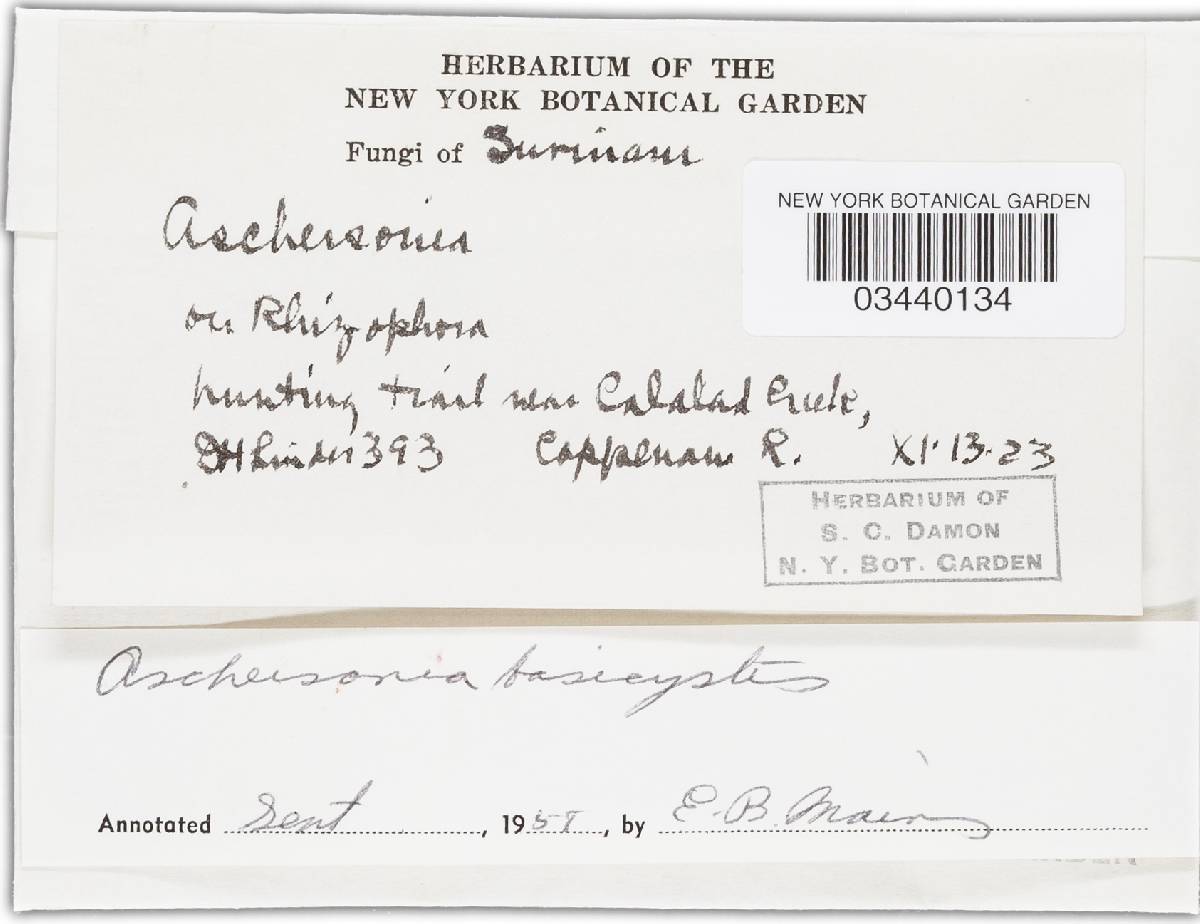 HERBARIUM OF THE
NEW YORK BOTANICAL GARDEN
Fungi of Surinam
NEW YORK BOTANICAL GARDEN
03440134
Aschersonia
on Rhizophora
hunting trail near Calalad Creek,
DH Linder 393 Coppenam R. XI-13-23
HERBARIUM OF
S. C. DAMON
N. Y. BOT. GARDEN
Aschersonia basicystis
Annotated Sept, 1958, by E. B. Mains